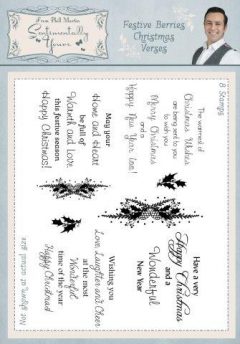 From Phill Martin
Sentimentally
Yours
Festive Berries
Christmas
Verses
8 Stamps
The warmest of
Christmas Wishes
are being sent to you
to wish you
Merry Christmas
and a
Happy New Year too!
May your
Home and Heart
be full of
Warmth and Love
this festive season
Happy Christmas!
Have a very
Happy Christmas
and a
Wonderful
New Year
Wishing you
Love, Laughter and Cheer
at this most
Wonderful
time of the year
Happy Christmas!
Not shown at actual size